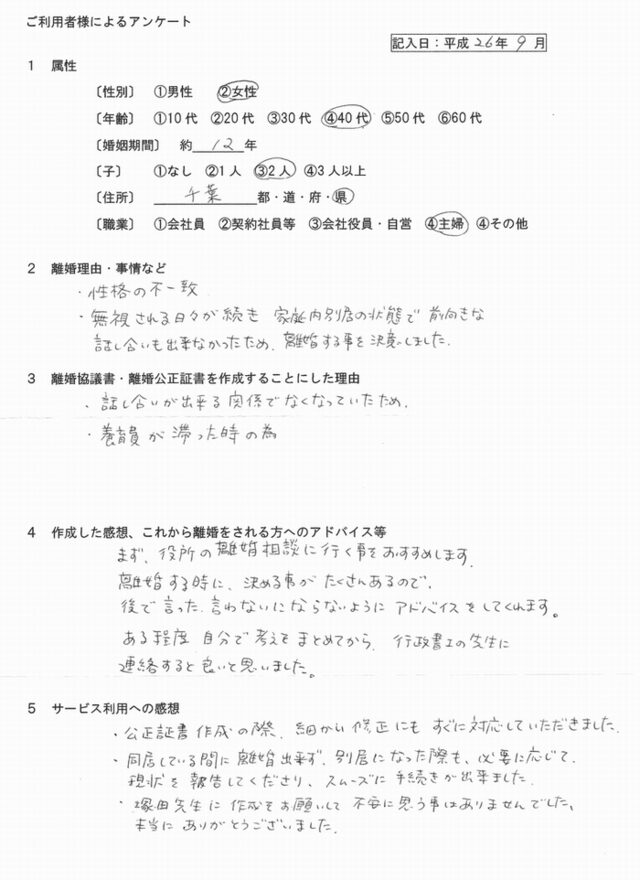 ご利用者様によるアンケート
記入日：平成 26年 9 月
1 属性
〔性別〕 ①男性 ②女性
〔年齢〕 ①10代 ②20代 ③30代 ④40代 ⑤50代 ⑥60代
〔婚姻期間〕 約 12 年
〔子〕 ①なし ②1人 ③2人 ④3人以上
〔住所〕 千葉 都・道・府・県
〔職業〕 ①会社員 ②契約社員等 ③会社役員・自営 ④主婦 ④その他
2 離婚理由・事情など
・性格の不一致
・無視される日々が続き 家庭内別居の状態で 前向きな
話し合いも出来なかったため、離婚する事を決意しました.
3 離婚協議書・離婚公正証書を作成することにした理由
・話し合いが出来る関係でなくなっていたため.
・養育費が滞った時の為
4 作成した感想、これから離婚をされる方へのアドバイス等
まず、役所の離婚相談に行く事をおすすめします.
離婚する時に、決める事がたくさんあるので、
後で言った.言わないにならないように アドバイスをしてくれます。
ある程度 自分で考えをまとめてから、行政書士の先生に
連絡すると良いと思いました。
5 サービス利用への感想
・公正証書作成の際、細かい修正にもすぐに対応していただきました.
・同居している間に離婚出来ず、別居になった際も、必要に応じて、
現状を報告してくださり、スムーズに手続きが出来ました.
・塚田先生に作成をお願いして不安に思う事はありませんでした。
本当にありがとうございました.